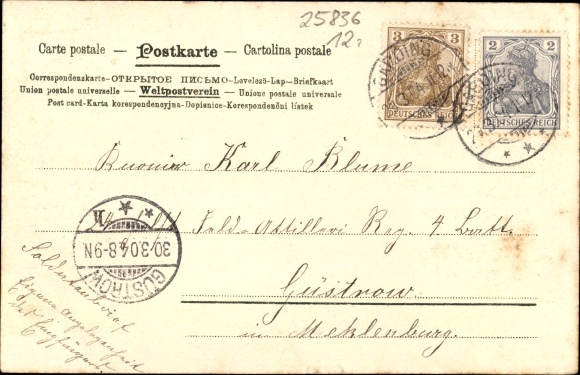 25836
12.-
Carte postale — Postkarte — Cartolina postale
Correspondenzkarte-ОТКРЫТОЕ ПИСЬМО-Levelezö-Lap-Briefkaart
Union postale universelle — Weltpostverein — Unione postale universale
Post card-Karta korespondencyjna-Dopisnice-Korespondenčni listek
3 3
DEUTSCHES REICH
2 2
DEUTSCHES REICH
GARDING
GARDING
Karl Blume
Feld-Attilleri Reg. 4 Batt.
Güstrow
in Meklenburg.
30.3.04.8-9N
GÜSTROW
Soldatenbrief
Eigene Angelegenheit
des Empfängers